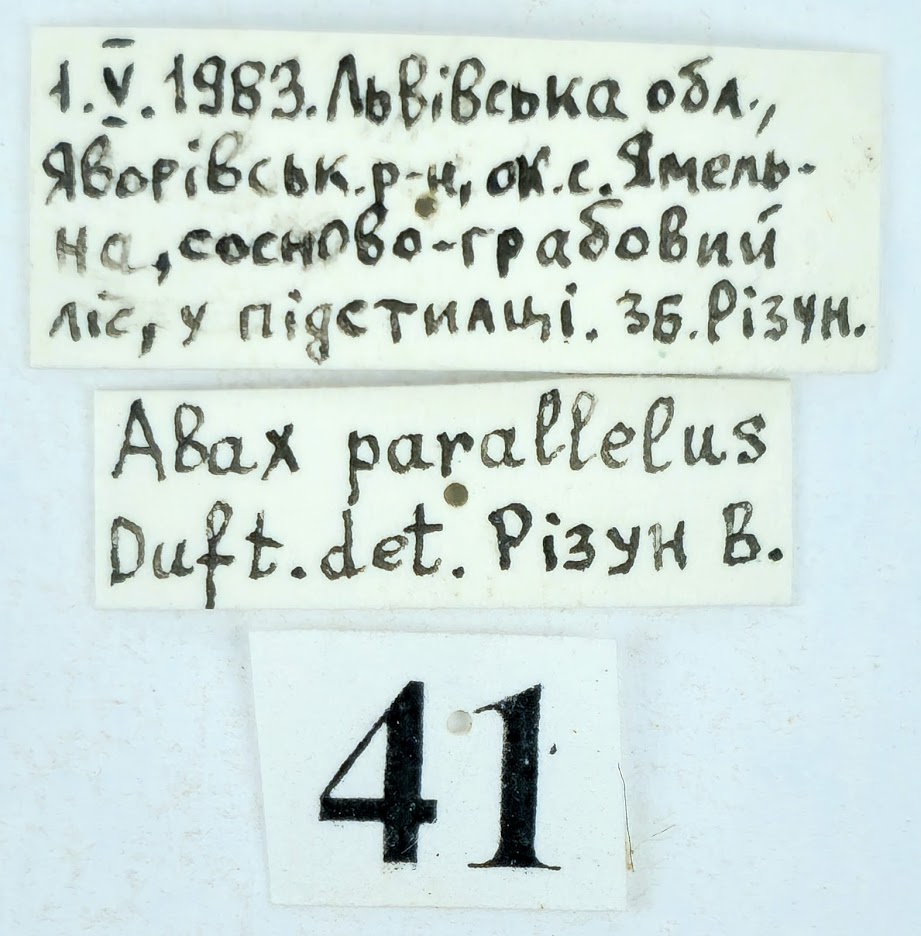 1.V.1983. Львівська обл.,
Яворівськ. р-н, ок. с. Ямель-
на, сосново-грабовий
ліс, у підстилці. Зб. Різун.
Abax parallelus
Duft. det. Різун В.
41